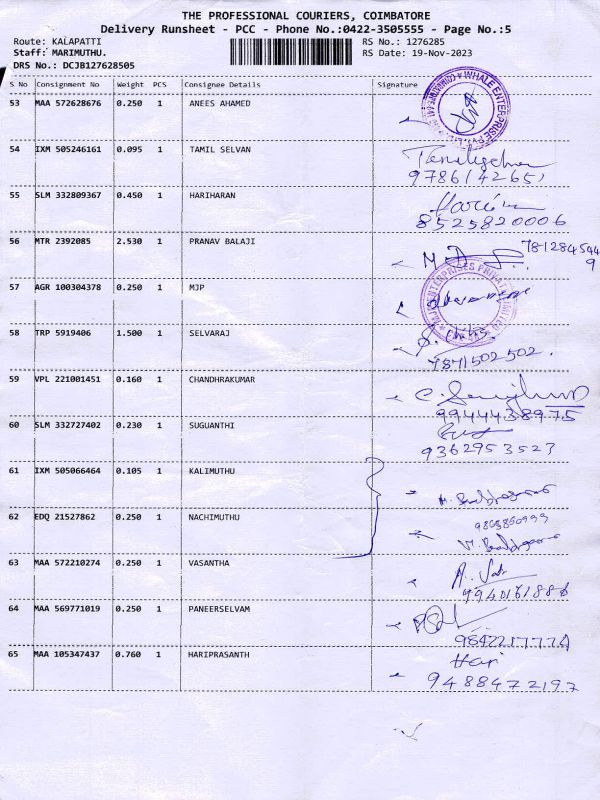 THE PROFESSIONAL COURIERS, COIMBATORE
Delivery Runsheet - PCC - Phone No.:0422-3505555 - Page No.:5
Route: KALAPATTI
Staff: MARIMUTHU.
DRS No.: DCJB127628505
RS No.: 1276285
RS Date: 19-Nov-2023
S No Consignment No Weight PCS Consignee Details Signature
53 MAA 572628676 0.250 1 ANEES AHAMED
WHALE ENTERPRISE PVT. LTD
54 IXM 505246161 0.095 1 TAMIL SELVAN
9786142651
55 SLM 332809367 0.450 1 HARIHARAN
8525820006
56 MTR 2392085 2.530 1 PRANAV BALAJI
57 AGR 100304378 0.250 1 MJP
MJP ENTERPRISES PRIVATE LIMITED
58 TRP 5919406 1.500 1 SELVARAJ
7871502502.
59 VPL 221001451 0.160 1 CHANDHRAKUMAR
9944438975
60 SLM 332727402 0.230 1 SUGUANTHI
9362953523
61 IXM 505066464 0.105 1 KALIMUTHU
62 EDQ 21527862 0.250 1 NACHIMUTHU
63 MAA 572210274 0.250 1 VASANTHA
9940161886
64 MAA 569771019 0.250 1 PANEERSELVAM
65 MAA 105347437 0.760 1 HARIPRASANTH
Har
9488472197